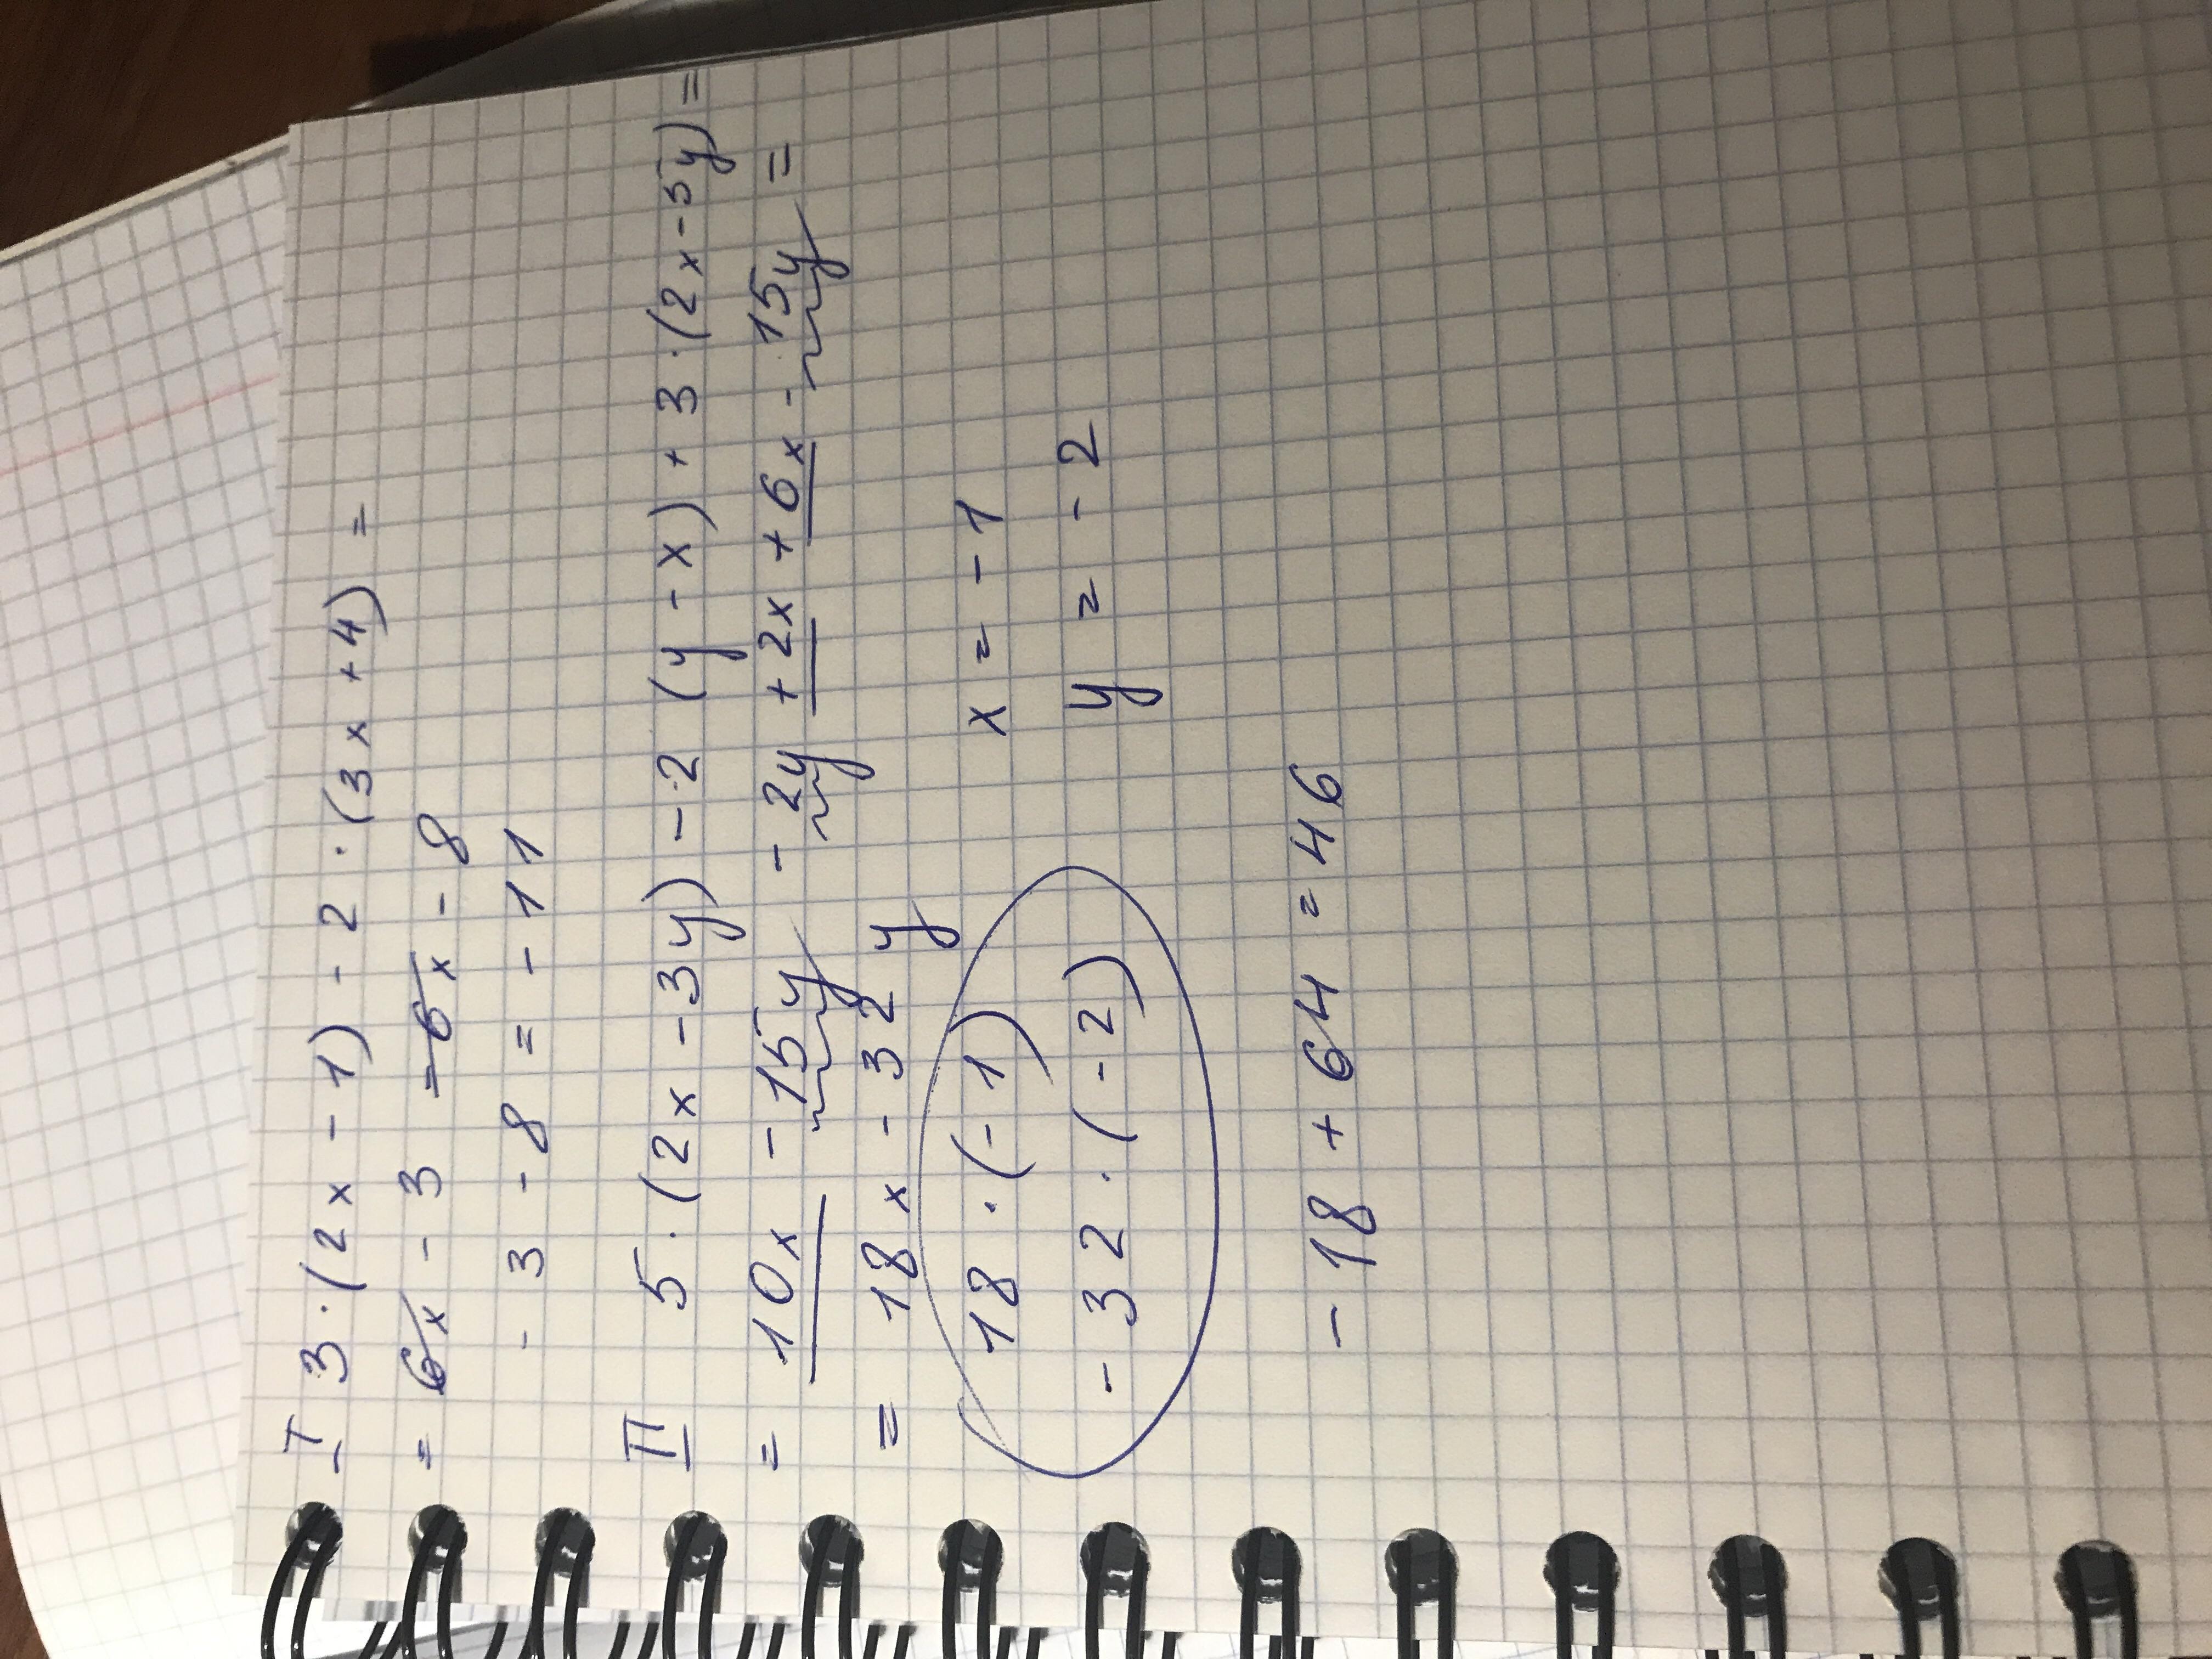 I 3·(2x-1)-2·(3x+4)=
=6x-3-6x-8
-3-8=-11
II 5·(2x-3y)-2(y-x)+3·(2x-5y)=
=10x-15y-2y+2x+6x-15y=
=18x-32y
18·(-1) x=-1
-32·(-2) y=-2
-18+64=46